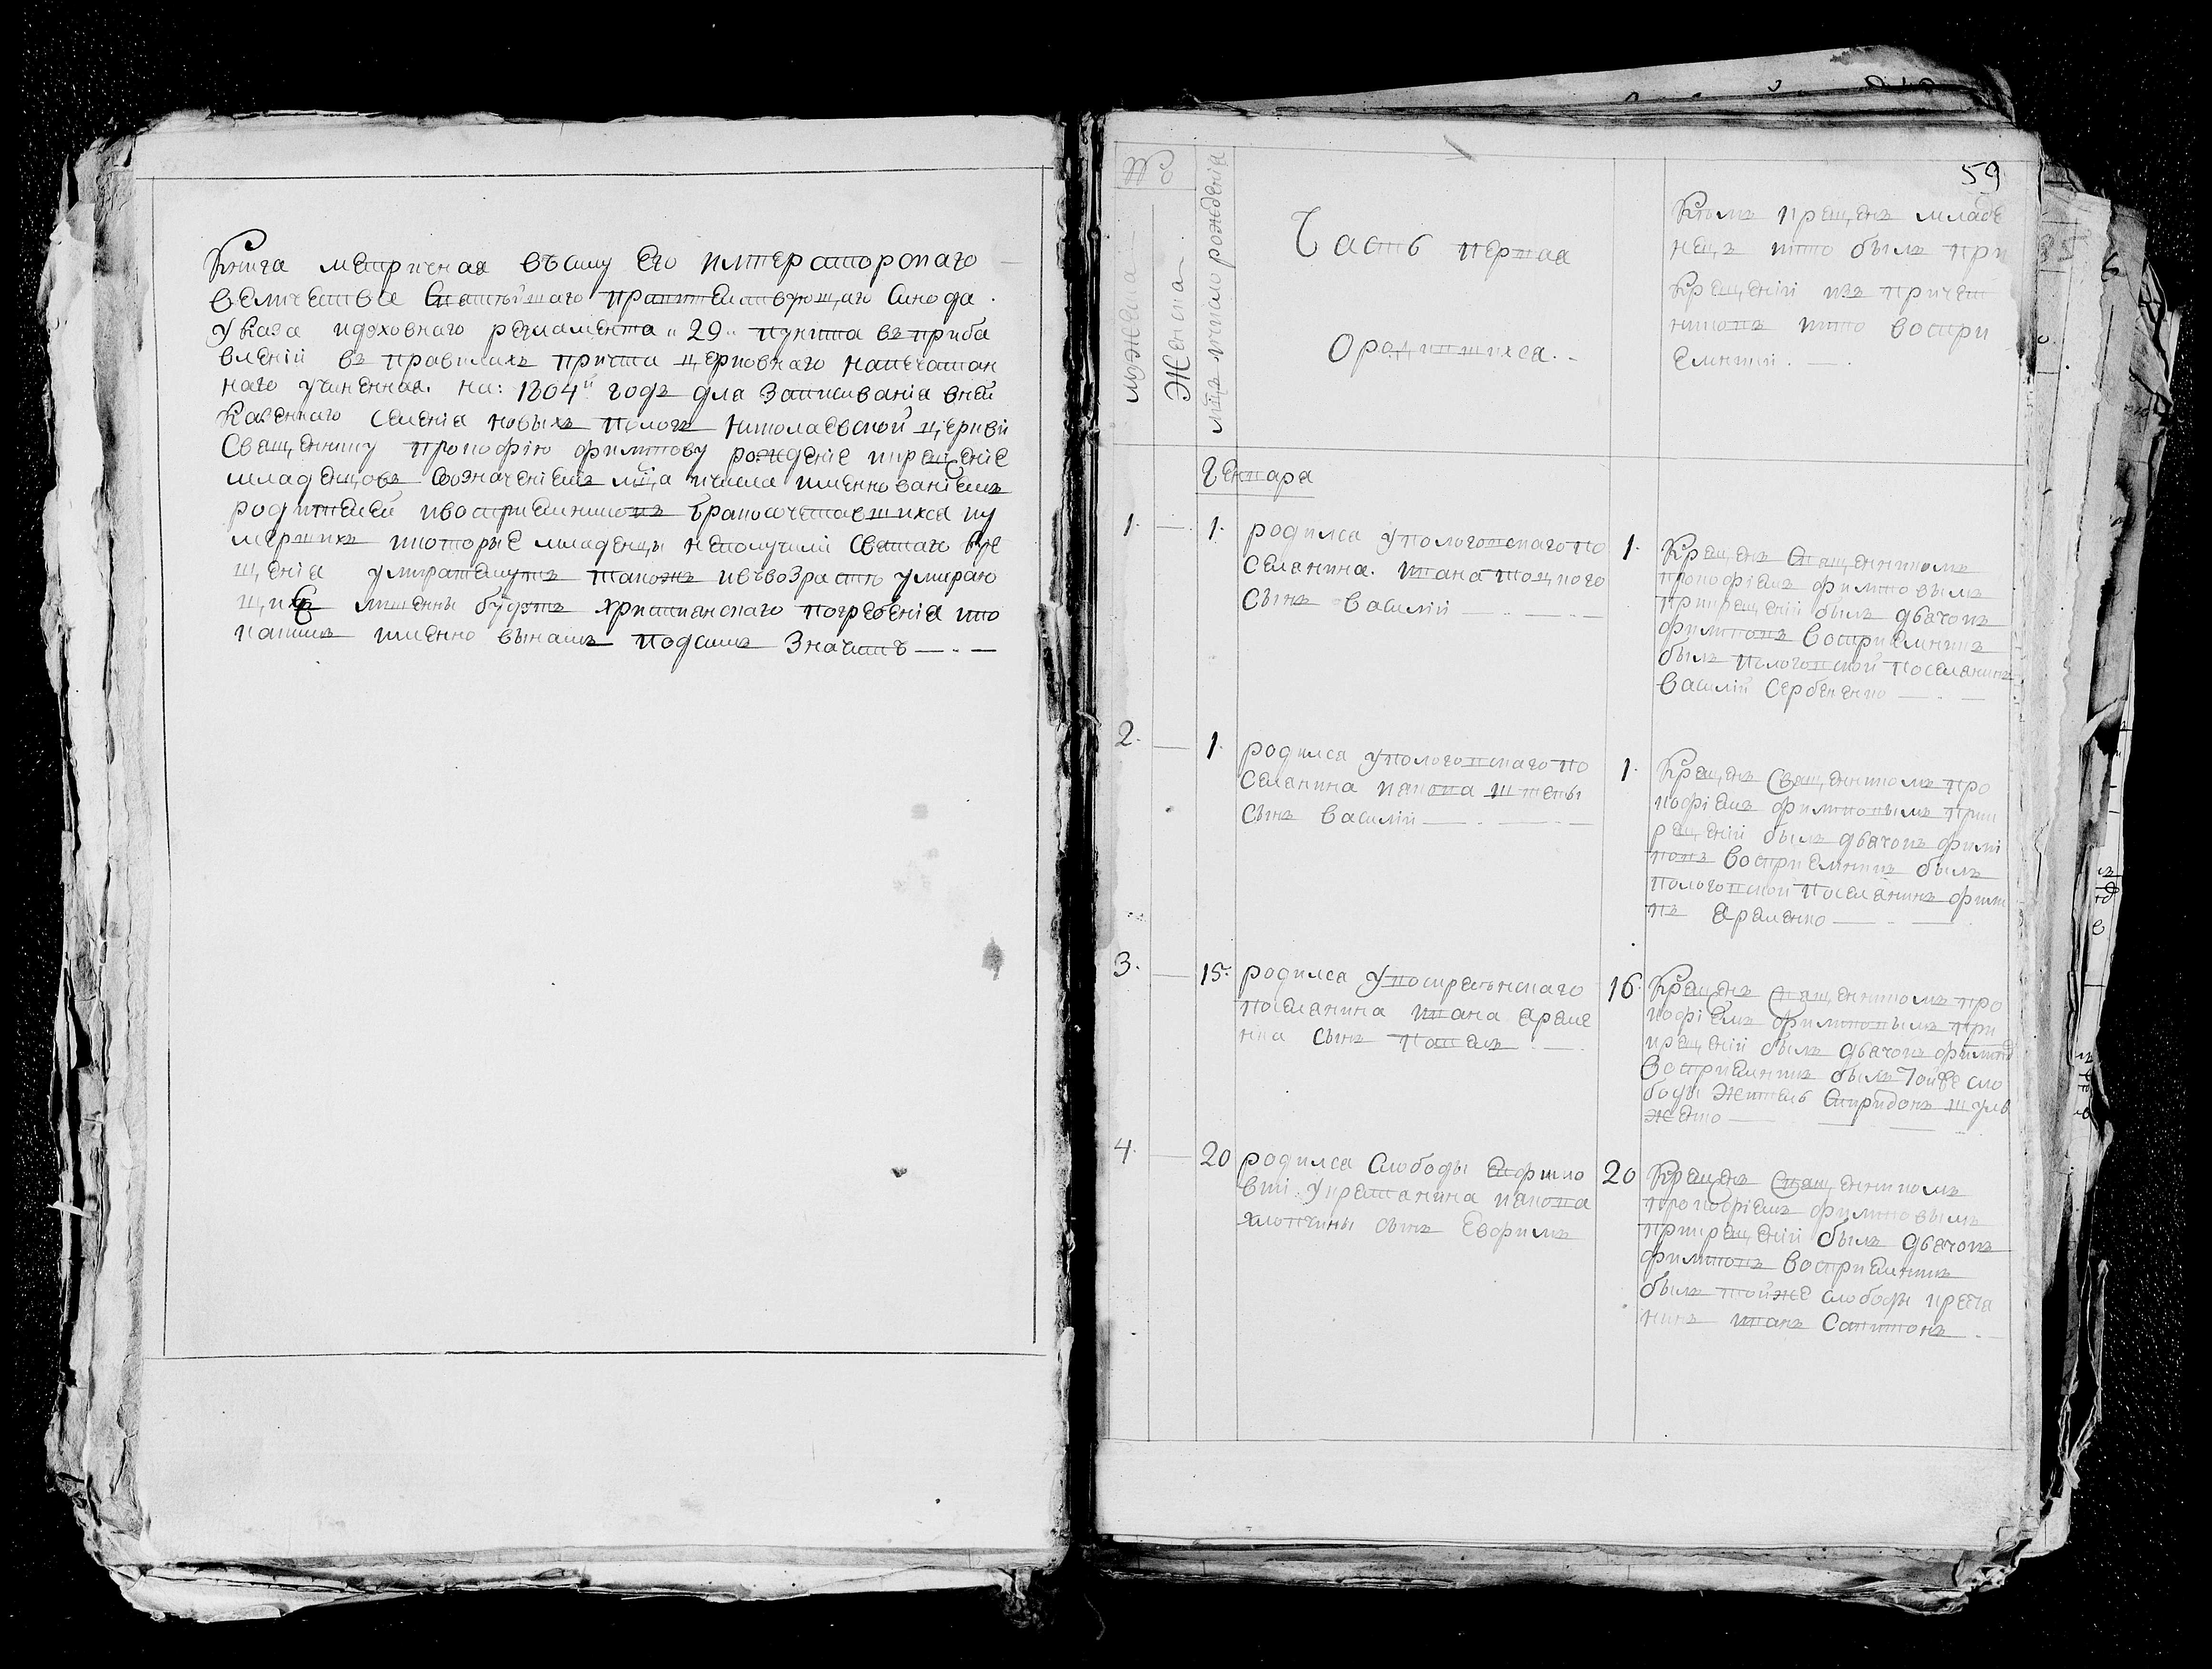 Книга метричная въсилу Его императорскаго
величества Святѣйшаго правительствующаго Синода
указа идуховнаго регламента „29„ пункта въ приба
вленіи въ правилахъ причта церковнаго напечатан
наго учиненная на: 1804й годъ для записиванія вней
Казеннаго селенія новыхъ николаевской церкви
Священнику прокофію филипову рожденіе икрещеніе
младенцовъ соозначеніемъ мц̃а ичисла именнованіемъ
родителей ивоспріемниковъ бракосочетавшихся иу
мершихъ икоторые младенцы неполучили святаго кре
щенія умираютъ такожъ ивъвозрастѣ умираю
щихъ лишены будутъ христианскаго погребенія кто
именно вънашъ подъсимъ значитъ
59
мужеска
Женска
мц̃ъ ичисло рожденія
Часть первая
Ородившихся.
Кѣмъ крещенъ младе
нецъ икто былъ при
Крещеніи изъ причет
никовъ икто воспри
емники.
Генваря
1. 1. родился упологовскаго по
селянина. ивана
сынъ василій
1. Крещенъ Священникомъ
прокофіемъ филиповымъ
прикрещеніи былъ дьячокъ
филиповъ воспріемникъ
былъ пологовской поселянинъ
василій Сербиенко
2. 1. родился упологовскаго по
селянина якова
сынъ василій
1. Крещенъ Священникомъ про
кофіемъ филиповымъ прик
рещеніи былъ дьячокъ фили
повъ воспріемникъ былъ
пологовской поселянинъ фили
пъ яременко
3. 15. родился
поселянина ивана яреме
нка сынъ павелъ
16. Крещенъ Священникомъ про
кофіемъ филиповымъ при
крещеніи былъ дьячокъ филипов
воспріемникъ былъ тойже сло
боды житель Спиридонъ шуль
женко
4. 20 родился слободы
укрестянина якова
хлопчины сынъ Евфимъ
20 Крещенъ Священникомъ
прокофіемъ филиповымъ
прикрещеніи былъ дьячокъ
филиповъ воспріемникъ
былъ тойже слободы кресть
нинъ иванъ